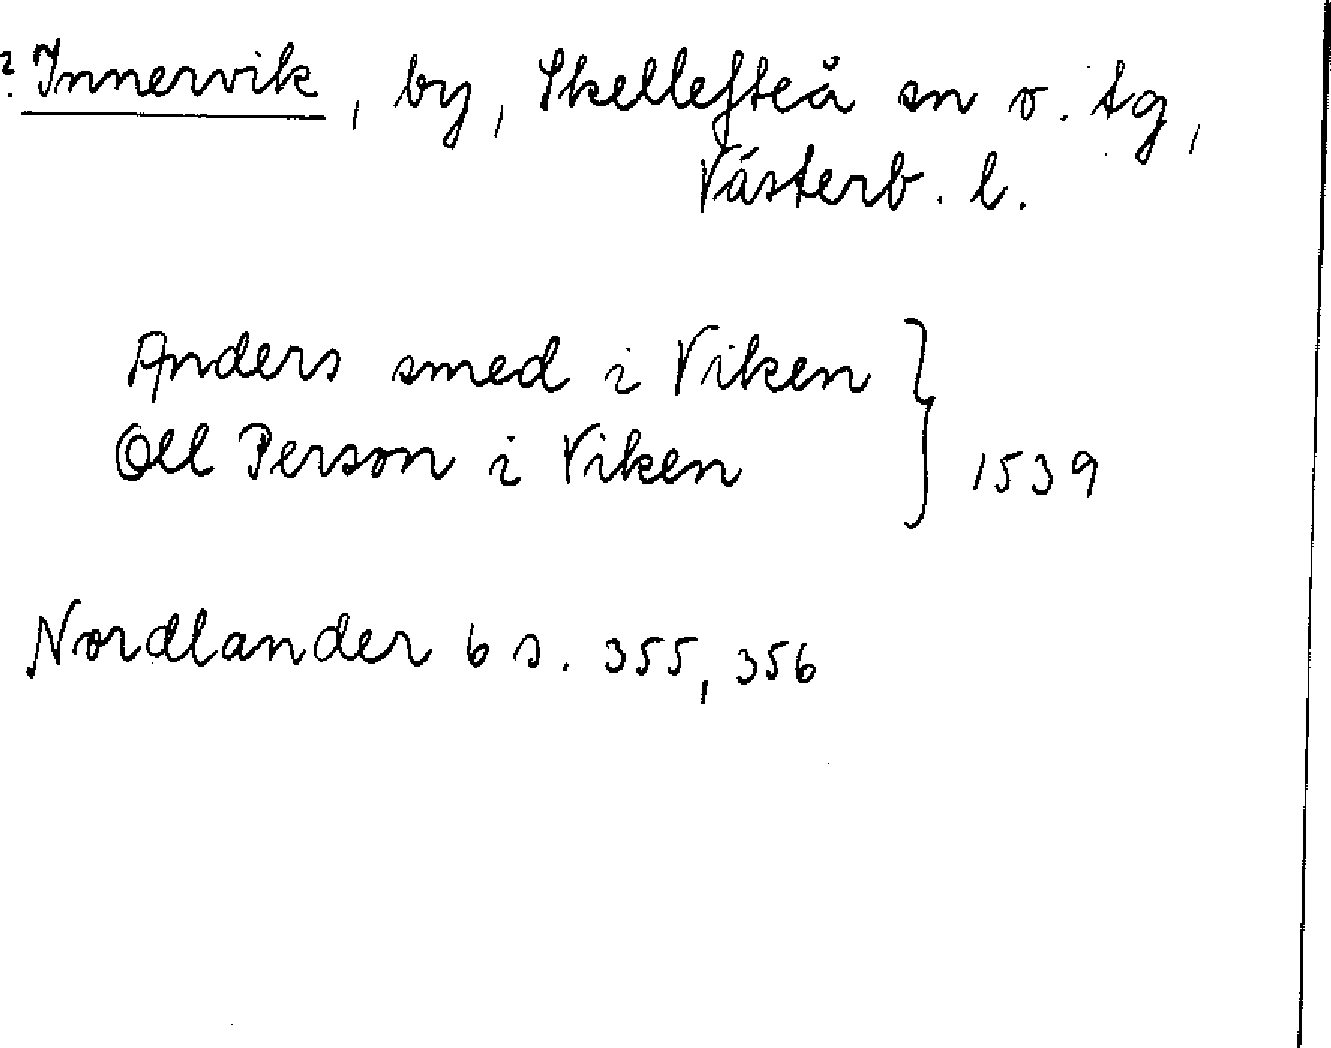 ? Innervik, by, Skellefteå sn o. tg,
Västerb. l.
Anders smed i Viken
Oll Person i Viken } 1539
Nordlander 6 s. 355, 356